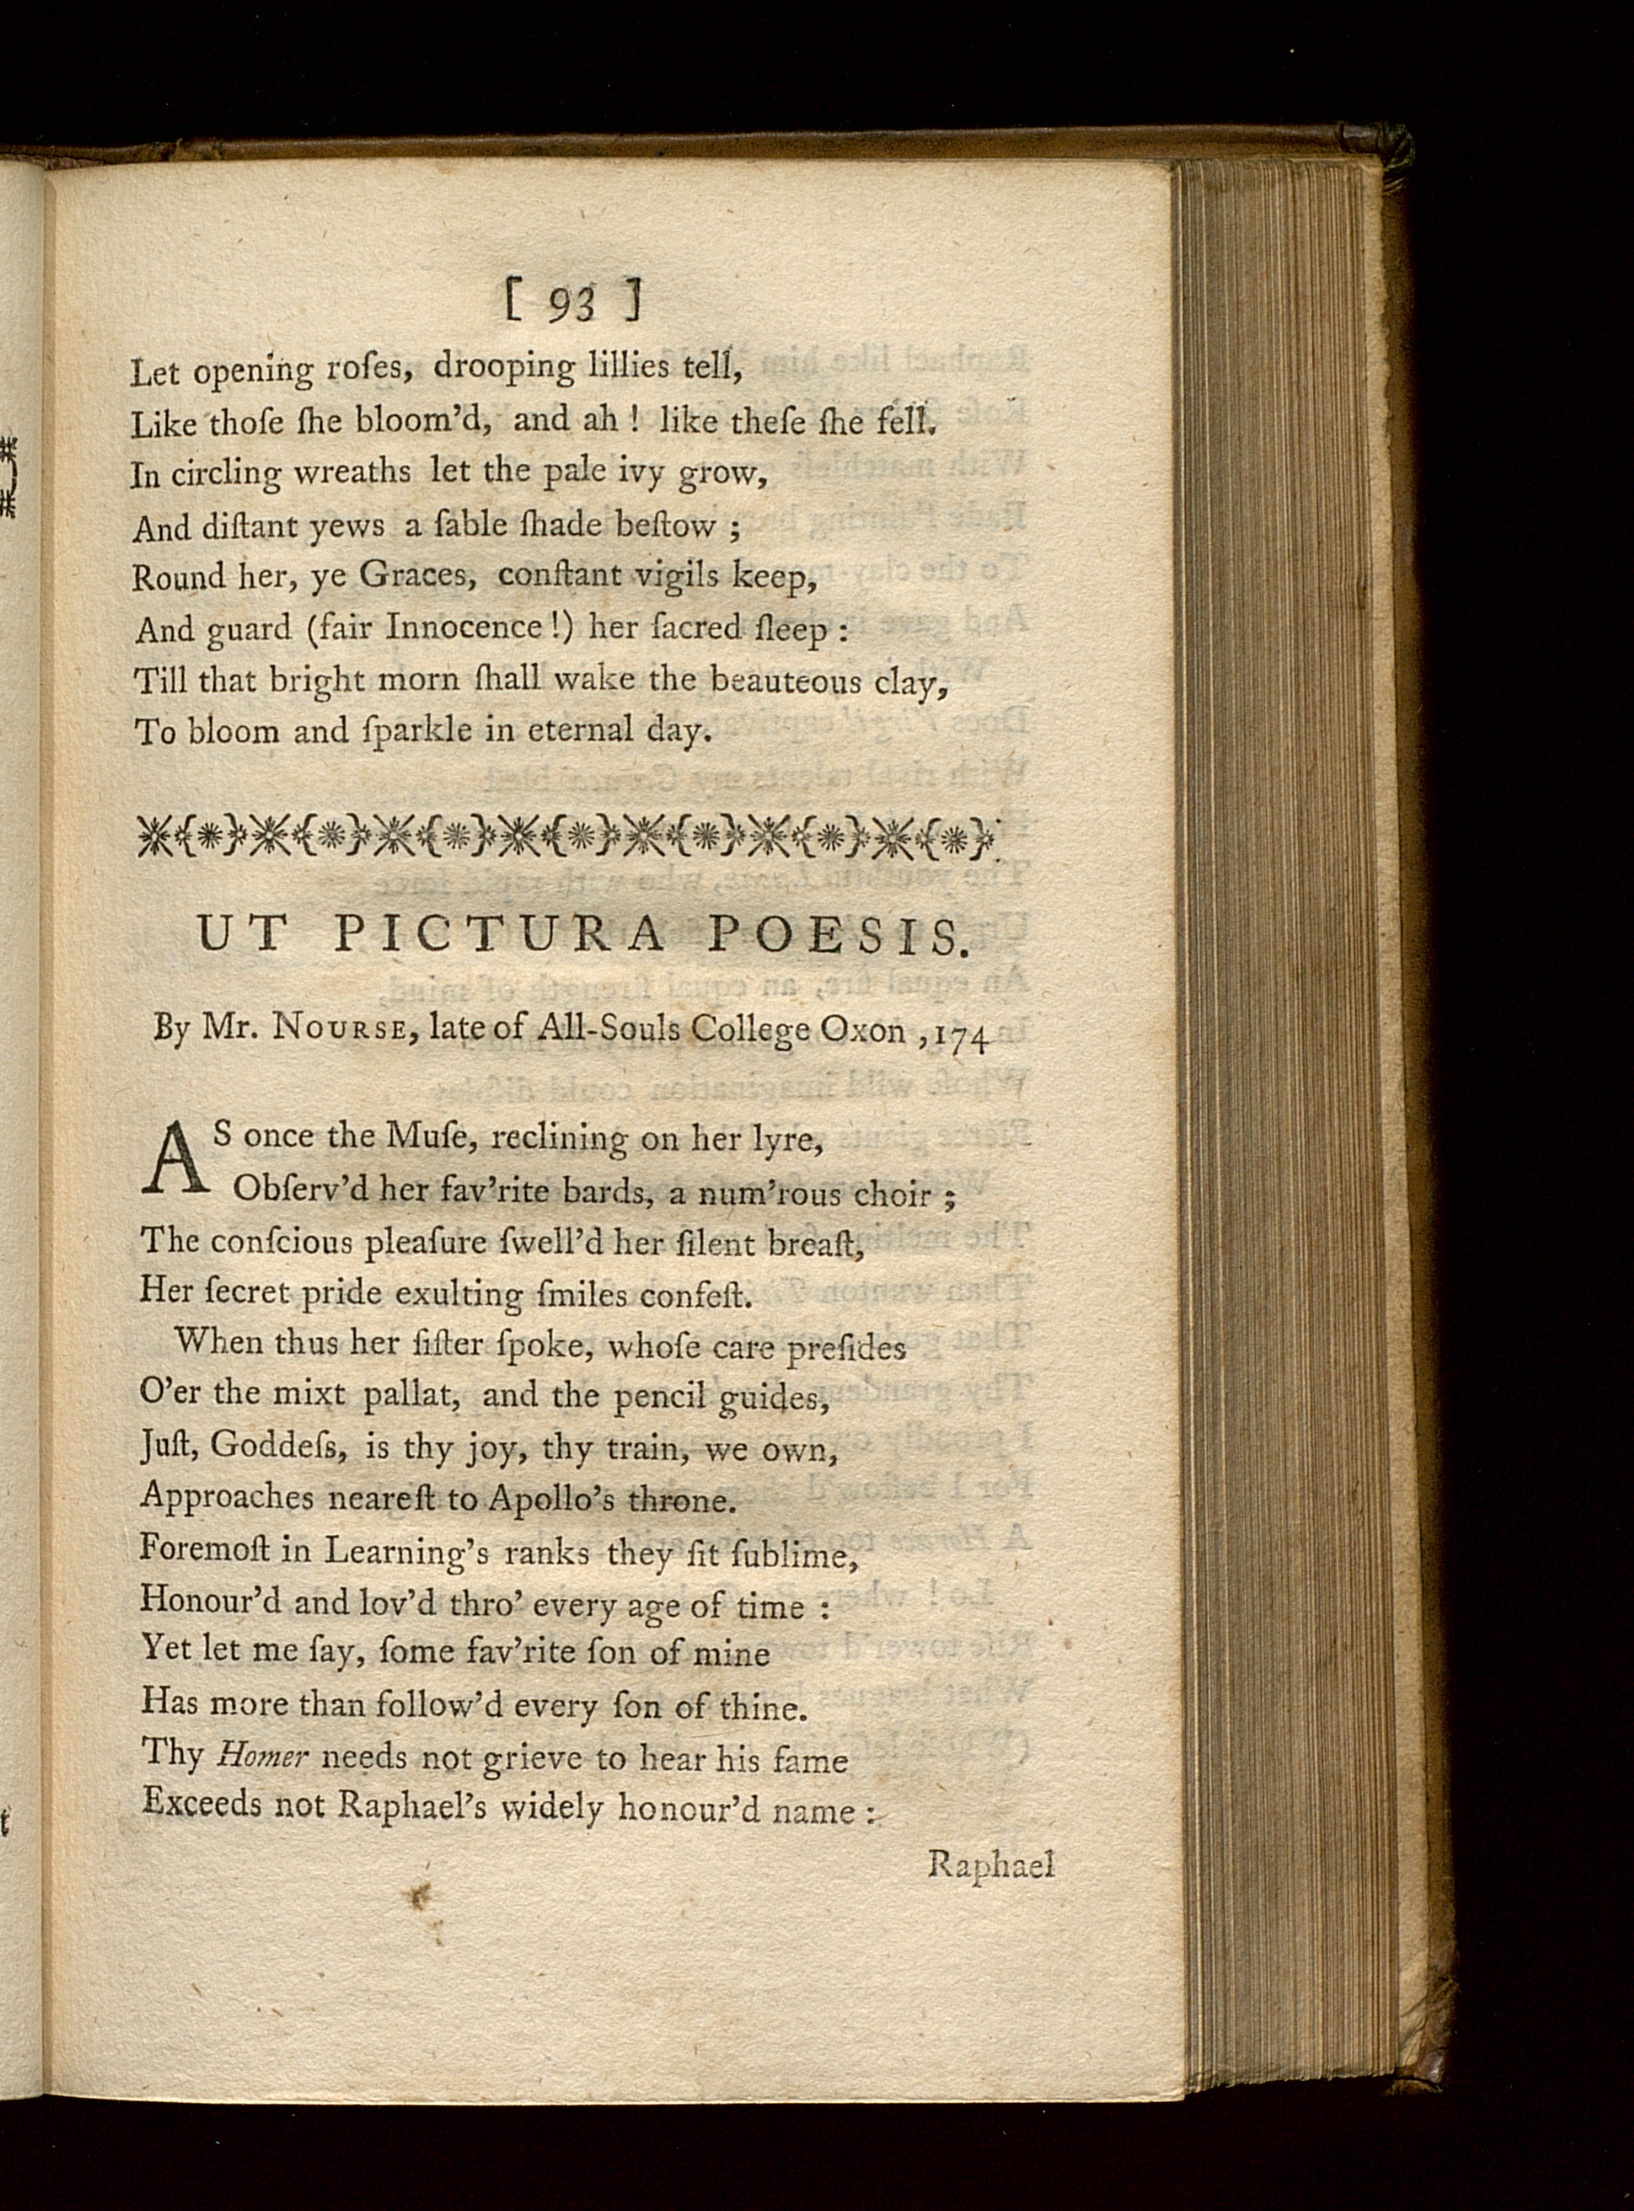 [ 93 ]
Let opening roſes, drooping lillies tell,
Like thoſe ſhe bloom'd, and ah ! like theſe ſhe fell.
In circling wreaths let the pale ivy grow,
And diſtant yews a ſable ſhade beſtow ;
Round her, ye Graces, conſtant vigils keep,
And guard (fair Innocence !) her ſacred ſleep :
Till that bright morn ſhall wake the beauteous clay,
To bloom and ſparkle in eternal day.
UT PICTURA POESIS.
By Mr. NOURSE, late of All-Souls College Oxon , 174
AS once the Muſe, reclining on her lyre,
Obſerv'd her fav'rite bards, a num'rous choir ;
The conſcious pleaſure ſwell'd her ſilent breaſt,
Her ſecret pride exulting ſmiles confeſt.
When thus her ſiſter ſpoke, whoſe care preſides
O'er the mixt pallat, and the pencil guides,
Juſt, Goddeſs, is thy joy, thy train, we own,
Approaches neareſt to Apollo's throne.
Foremoſt in Learning's ranks they ſit ſublime,
Honour'd and lov'd thro' every age of time :
Yet let me ſay, ſome fav'rite ſon of mine
Has more than follow'd every ſon of thine.
Thy Homer needs not grieve to hear his fame
Exceeds not Raphael's widely honour'd name :
Raphael